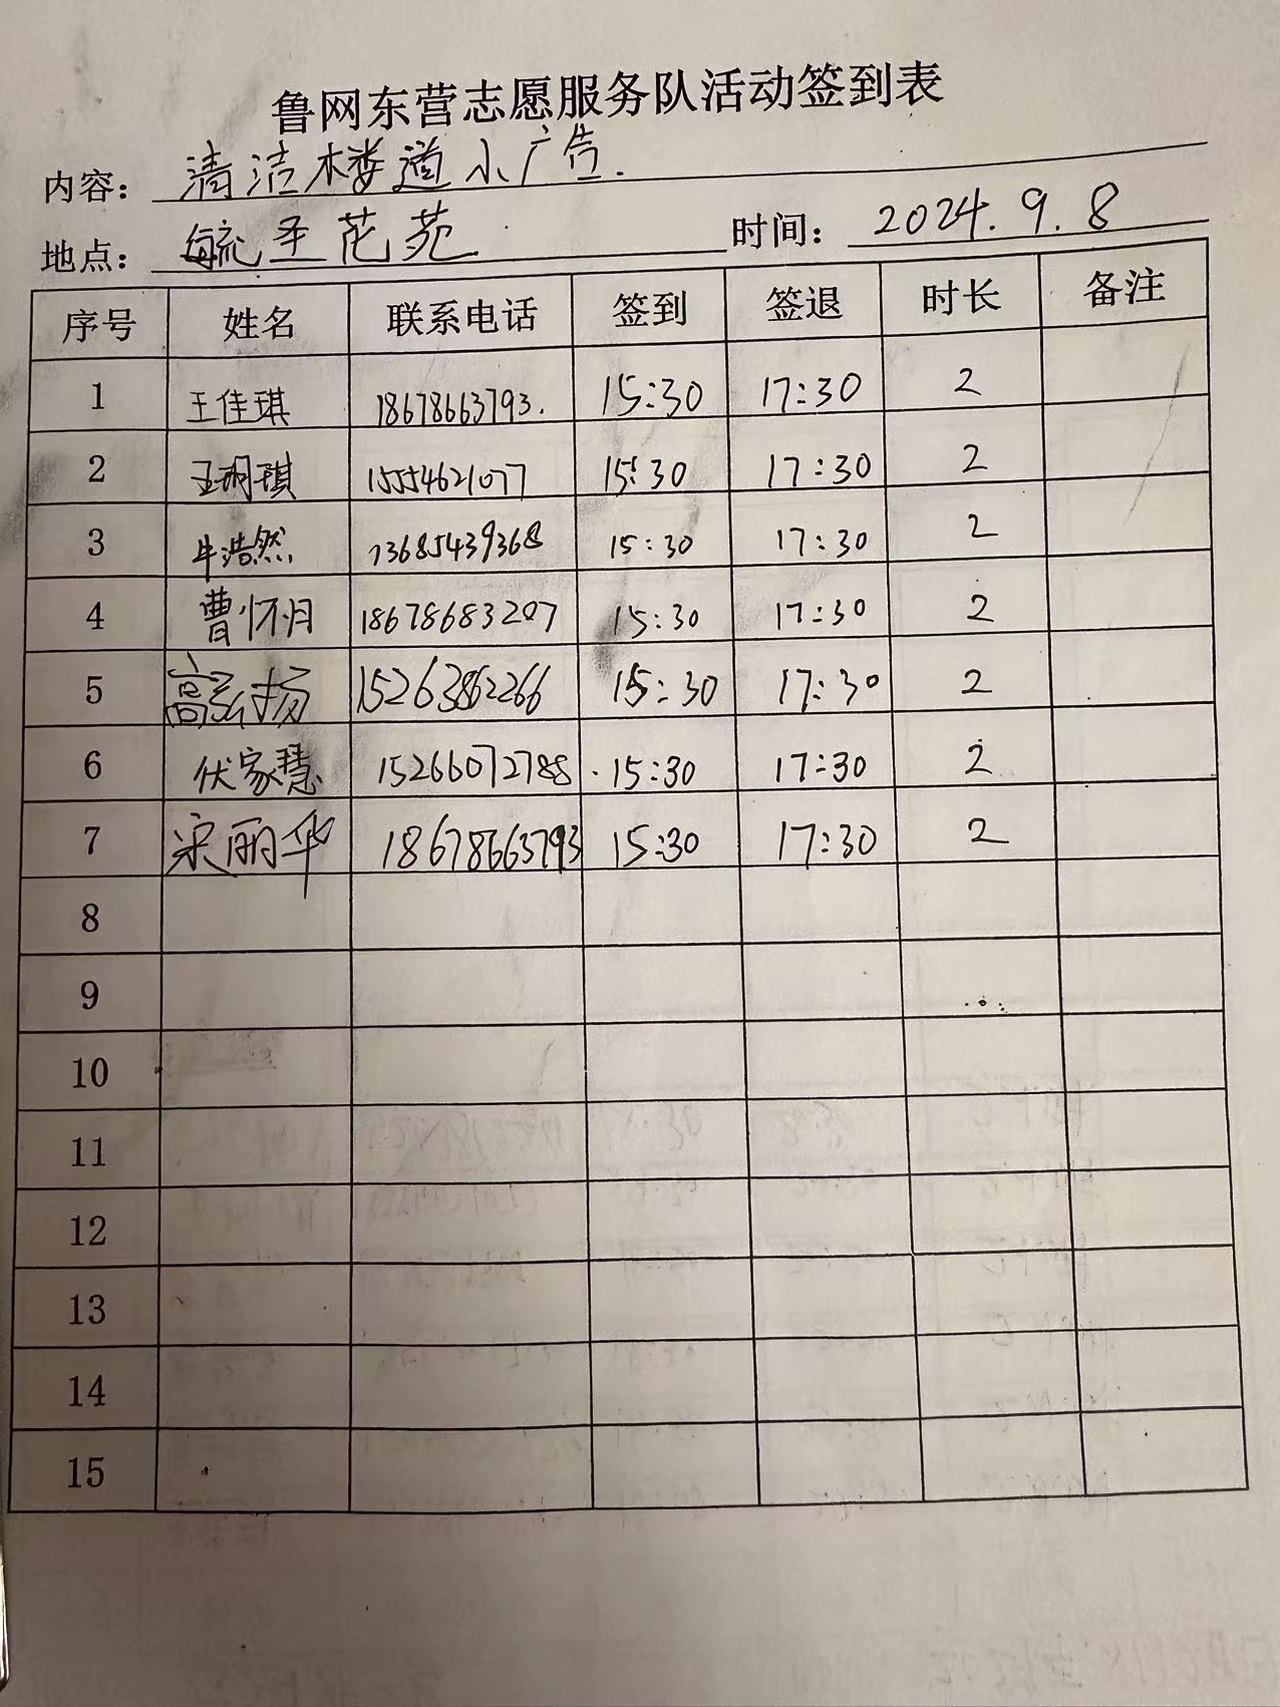 鲁网东营志愿服务队活动签到表
内容：清洁楼道小广告.
地点：毓秀花苑 时间：2024.9.8
序号 姓名 联系电话 签到 签退 时长 备注
1 王佳琪 18678663793. 15:30 17:30 2
2 王明琪 15554621077 15:30 17:30 2
3 牛浩然 13685439368 15:30 17:30 2
4 曹怀月 18678683207 15:30 17:30 2
5 高弘扬 15263862266 15:30 17:30 2
6 伏家慧 15266072788 15:30 17:30 2
7 宋丽华 18678663793 15:30 17:30 2
8
9
10
11
12
13
14
15